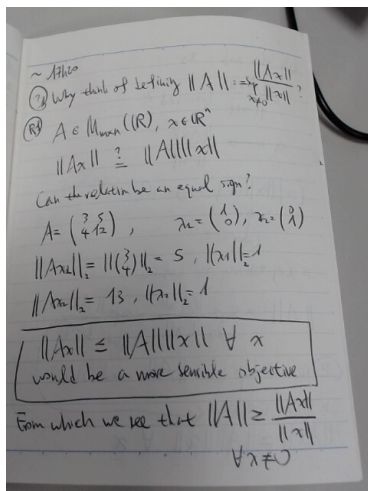 ~ 17h20
Q: Why think of defining ||A|| = sup_{x≠0} ||Ax|| / ||x|| ?
A ∈ M_{m×n}(ℝ), x ∈ ℝⁿ
||Ax|| ≟ ||A|| ||x||
Can the relation be an equal sign?
A = (3 5; 4 12), x₁ = (1 0), x₂ = (0 1)
||Ax₁||₂ = ||(3 4)||₂ = 5, ||x₁||₂ = 1
||Ax₂||₂ = 13, ||x₂||₂ = 1
||Ax|| ≤ ||A|| ||x|| ∀ x
would be a more sensible objective
From which we see that ||A|| ≥ ||Ax|| / ||x||
∀ x ≠ 0